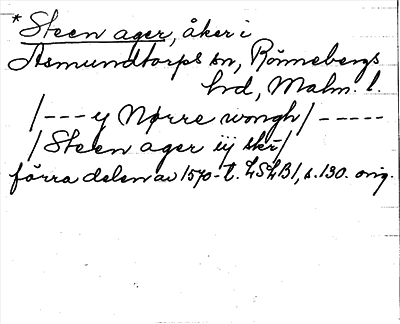 * Steen ager, åker i
Asmundtorps sn, Rönnebergs
hd, Malm. l.
/--- y Nørre wongh/ -----
/ Steen ager iij skr/
förra delen av 1570-t. LSLB1, s. 130. orig.